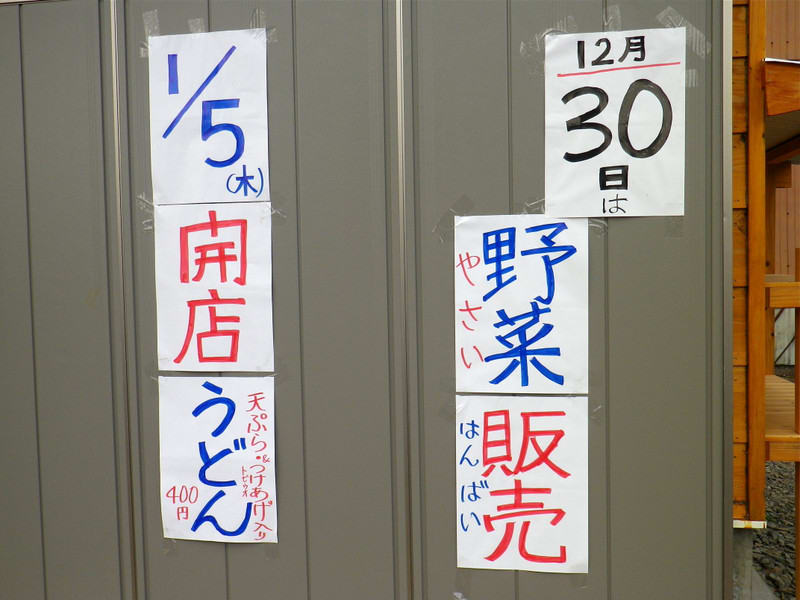 12月
30
日
は
野菜
やさい
販売
はんばい
1/5
(木)
開店
天ぷら・&つけあげ入り
トビウオ
うどん
400
円